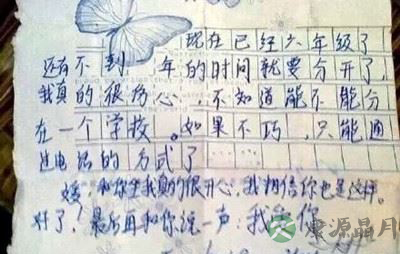 现在已经六年级了
还有不到一年的时间就要分开了,
我真的很伤心,不知道能不能分
在一个学校。如果不巧,只能通
过电话的方式了
和你 我真的很开心,我相信你也是这样.
对了!最后再和你说一声:我 你